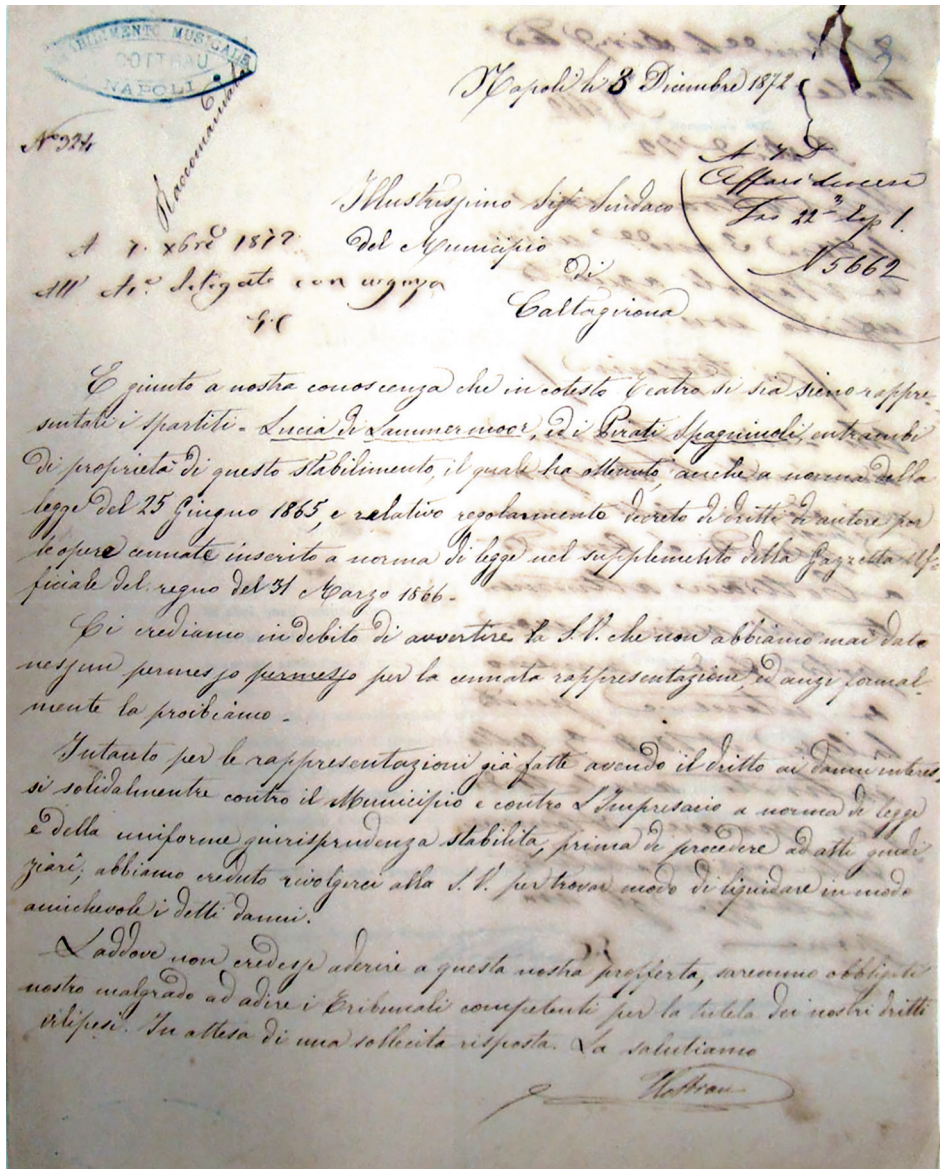 STABILIMENTO MUSICALE
COTTRAU
NAPOLI
Raccomandata
Napoli li 3 Dicembre 1872
Nº 324
A 7 D
Affari diversi
Fas 22º Esp 1.
N 5662
Illustrissimo Sigr Sindaco
del Municipio
di
Caltagirona
A 7. Xbre 1872
All' con urgenza
G.C
E giunto a nostra conoscenza che in cotesto Teatro si sia sieno rappre-
sentati i spartiti - Lucia di Lammermoor, ed i Pirati Spagnuoli, entrambi
di proprietà di questo stabilimento, il quale ha ottenuto, anche a norma della
legge del 25 Giugno 1865, e relativo regolamento decreto di dritti di autore per
le opere cennate inserito a norma di legge nel supplemento della Gazzetta Uf-
ficiale del regno del 31 Marzo 1866 -
Ci crediamo in debito di avvertire la S.V. che non abbiamo mai dato
nessun permesso permesso per la cennata rappresentazione, ed anzi formal-
mente la proibiamo -
Intanto per le rappresentazioni già fatte avendo il dritto ai danni interes-
si solidalmentre contro il Municipio e contro l'Impresario a norma di legge
e della uniforme giurisprudenza stabilita, prima di procedere ad atti giudi
ziarî, abbiamo creduto rivolgerci alla S.V. per trovar modo di liquidare in modo
amichevole i detti danni.
Laddove non credesse aderire a questa nostra profferta, saremmo obbligati
nostro malgrado ad adire i Tribunali competenti per la tutela dei nostri dritti
vilipesi. In attesa di una sollecita risposta. La salutiamo
Cottrau